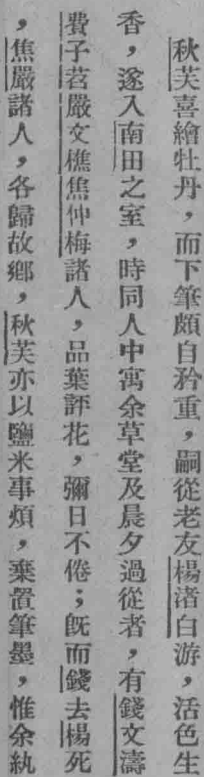 秋芙喜繪牡丹，而下筆頗自矜重，嗣從老友楊渚白游，活色生
香，遂入南田之室，時同人中寓余草堂及晨夕過從者，有錢文濤
費子苕嚴文樵焦仲梅諸人，品葉評花，彌日不倦；旣而錢去楊死
，焦嚴諸人，各歸故鄉，秋芙亦以鹽米事煩，棄置筆墨，惟余紈